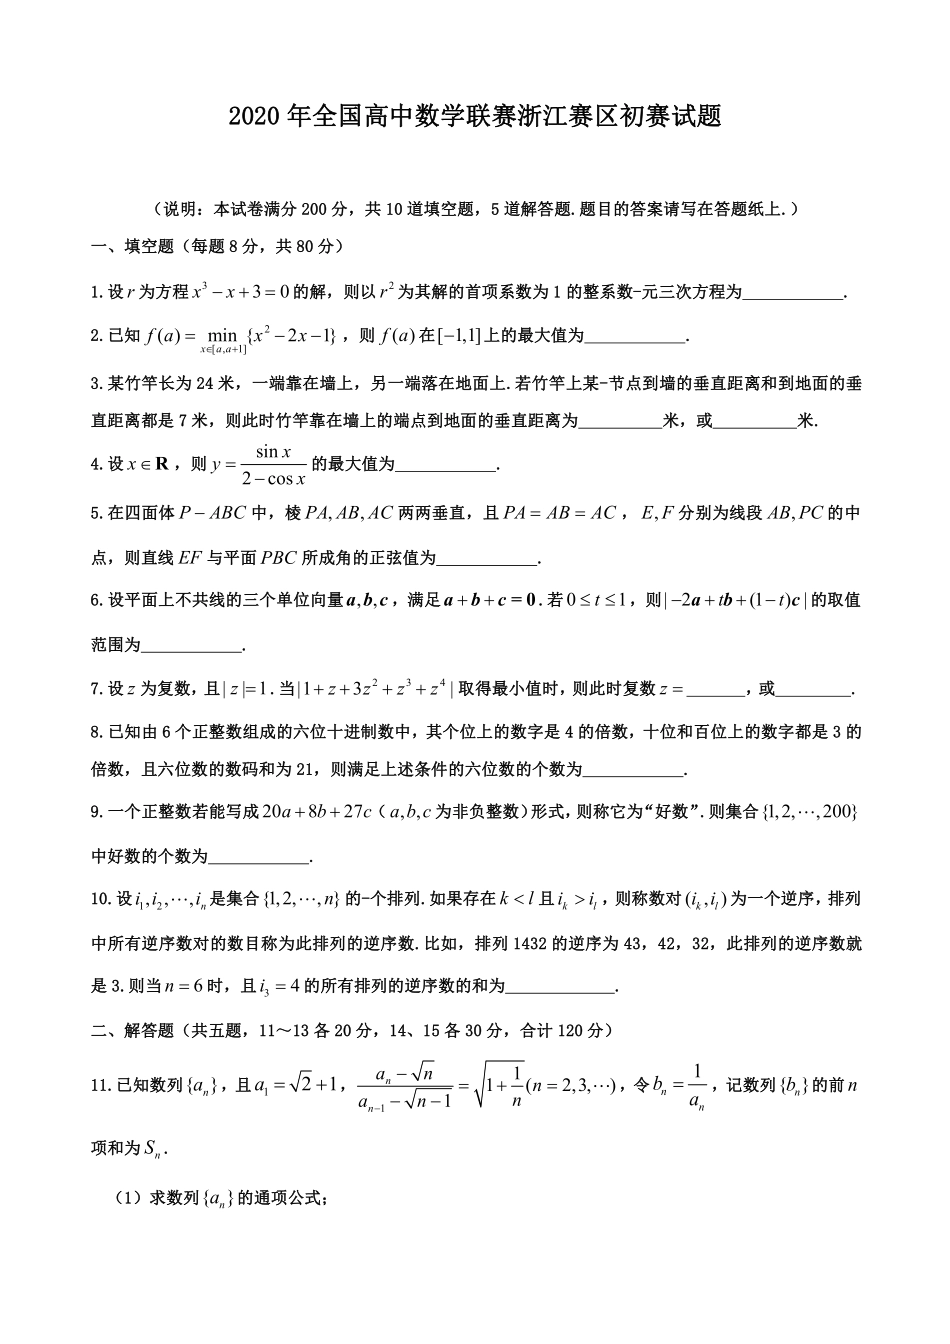 2020 年全国高中数学联赛浙江赛区初赛试题
（说明：本试卷满分 200 分，共 10 道填空题，5 道解答题.题目的答案请写在答题纸上.）
一、填空题（每题 8 分，共 80 分）
1.设 r 为方程 x³ − x + 3 = 0 的解，则以 r² 为其解的首项系数为 1 的整系数-元三次方程为____________.
2.已知 f(a) = min_{x∈[a,a+1]} {x² − 2x − 1}，则 f(a) 在 [−1,1] 上的最大值为____________.
3.某竹竿长为 24 米，一端靠在墙上，另一端落在地面上.若竹竿上某-节点到墙的垂直距离和到地面的垂
直距离都是 7 米，则此时竹竿靠在墙上的端点到地面的垂直距离为__________米，或__________米.
4.设 x ∈ R，则 y = sin x / (2 − cos x) 的最大值为____________.
5.在四面体 P − ABC 中，棱 PA, AB, AC 两两垂直，且 PA = AB = AC，E, F 分别为线段 AB, PC 的中
点，则直线 EF 与平面 PBC 所成角的正弦值为____________.
6.设平面上不共线的三个单位向量 a,b,c，满足 a + b + c = 0.若 0 ≤ t ≤ 1，则 | −2a + tb + (1 − t)c | 的取值
范围为____________.
7.设 z 为复数，且 | z |= 1.当 |1 + z + 3z² + z³ + z⁴ | 取得最小值时，则此时复数 z = _______，或_________.
8.已知由 6 个正整数组成的六位十进制数中，其个位上的数字是 4 的倍数，十位和百位上的数字都是 3 的
倍数，且六位数的数码和为 21，则满足上述条件的六位数的个数为____________.
9.一个正整数若能写成 20a + 8b + 27c（a,b,c 为非负整数）形式，则称它为“好数”.则集合 {1,2,⋯,200}
中好数的个数为____________.
10.设 i₁,i₂,⋯,iₙ 是集合 {1,2,⋯,n} 的-个排列.如果存在 k < l 且 iₖ > iₗ，则称数对 (iₖ,iₗ) 为一个逆序，排列
中所有逆序数对的数目称为此排列的逆序数.比如，排列 1432 的逆序为 43，42，32，此排列的逆序数就
是 3.则当 n = 6 时，且 i₃ = 4 的所有排列的逆序数的和为_____________.
二、解答题（共五题，11～13 各 20 分，14、15 各 30 分，合计 120 分）
11.已知数列 {aₙ}，且 a₁ = √2 + 1，(aₙ − √n) / (aₙ₋₁ − √(n − 1)) = √(1 + 1/n) (n = 2,3,⋯)，令 bₙ = 1/aₙ，记数列 {bₙ} 的前 n
项和为 Sₙ.
（1）求数列 {aₙ} 的通项公式；